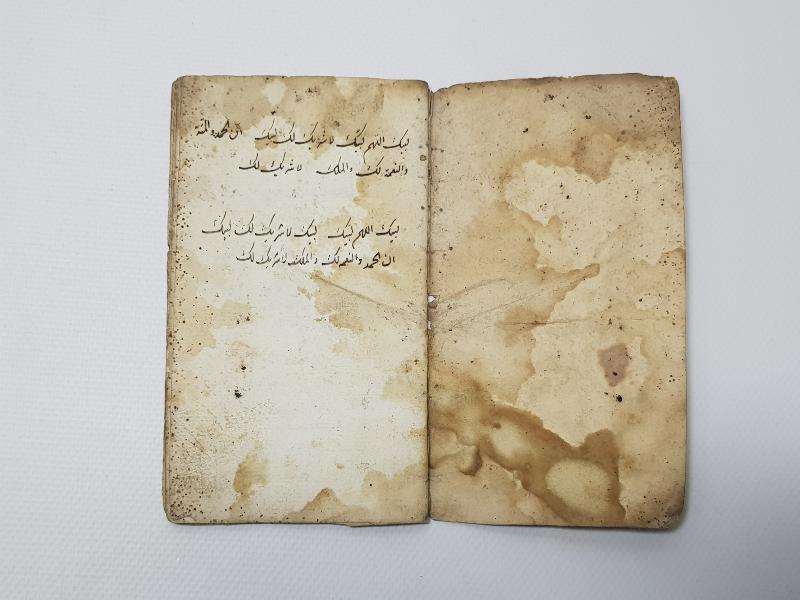 لبيك اللهم لبيك لا شريك لك لبيك ان الحمد والمنة
والنعمة لك والملك لا شريك لك
لبيك اللهم لبيك لبيك لا شريك لك لبيك
ان الحمد والنعمة لك والملك لا شريك لك